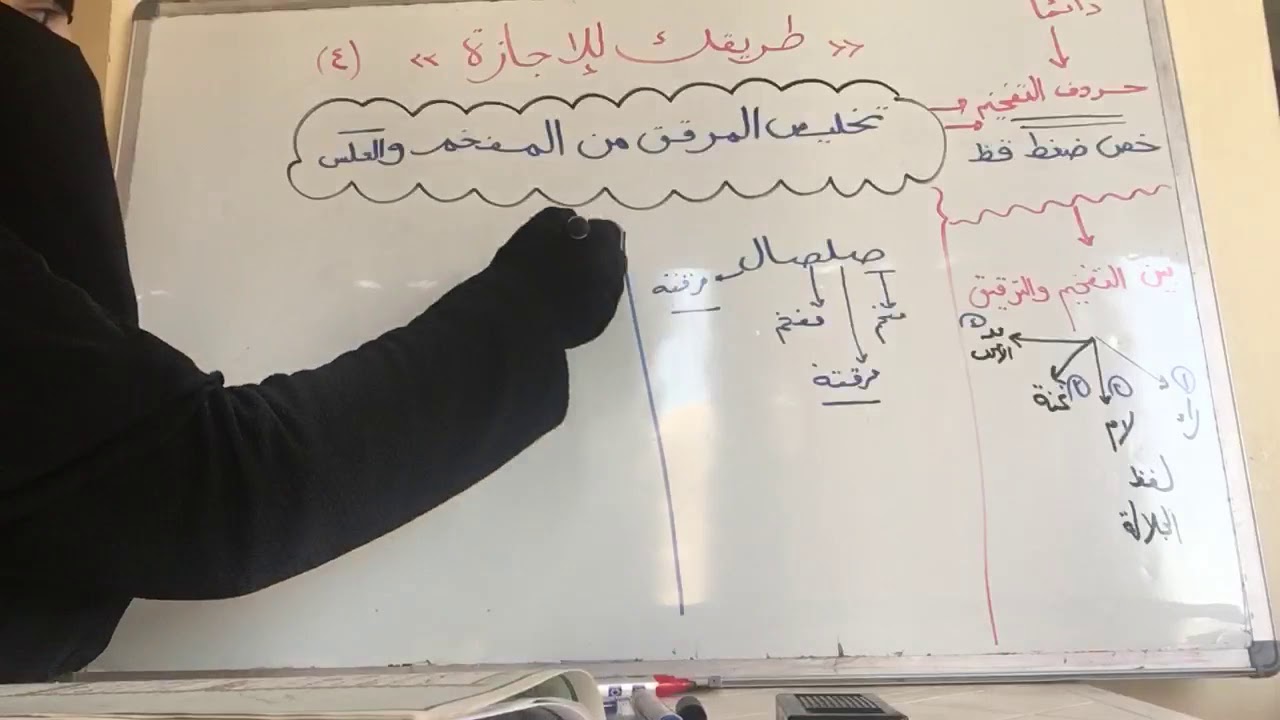 « طريقك للإجازة » (٤)
تخليص المرقق من المفخم والعكس
دائمًا
حروف التفخيم
خص ضغط قظ
بين التفخيم والترقيق
١ راء
٢ لام
لفظ
الجلالة
غنة
مد
الألف
صلصال
مفخم
مفخم
مرققة
مرققة